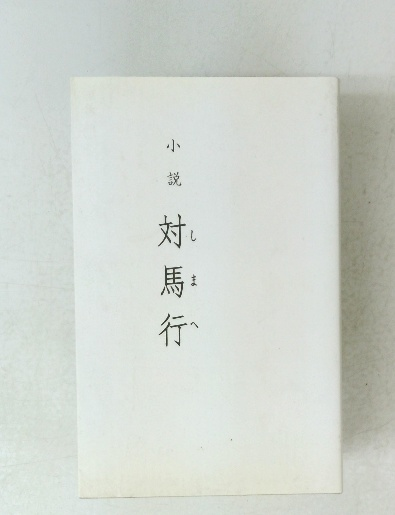 小説
対馬行
しまへ